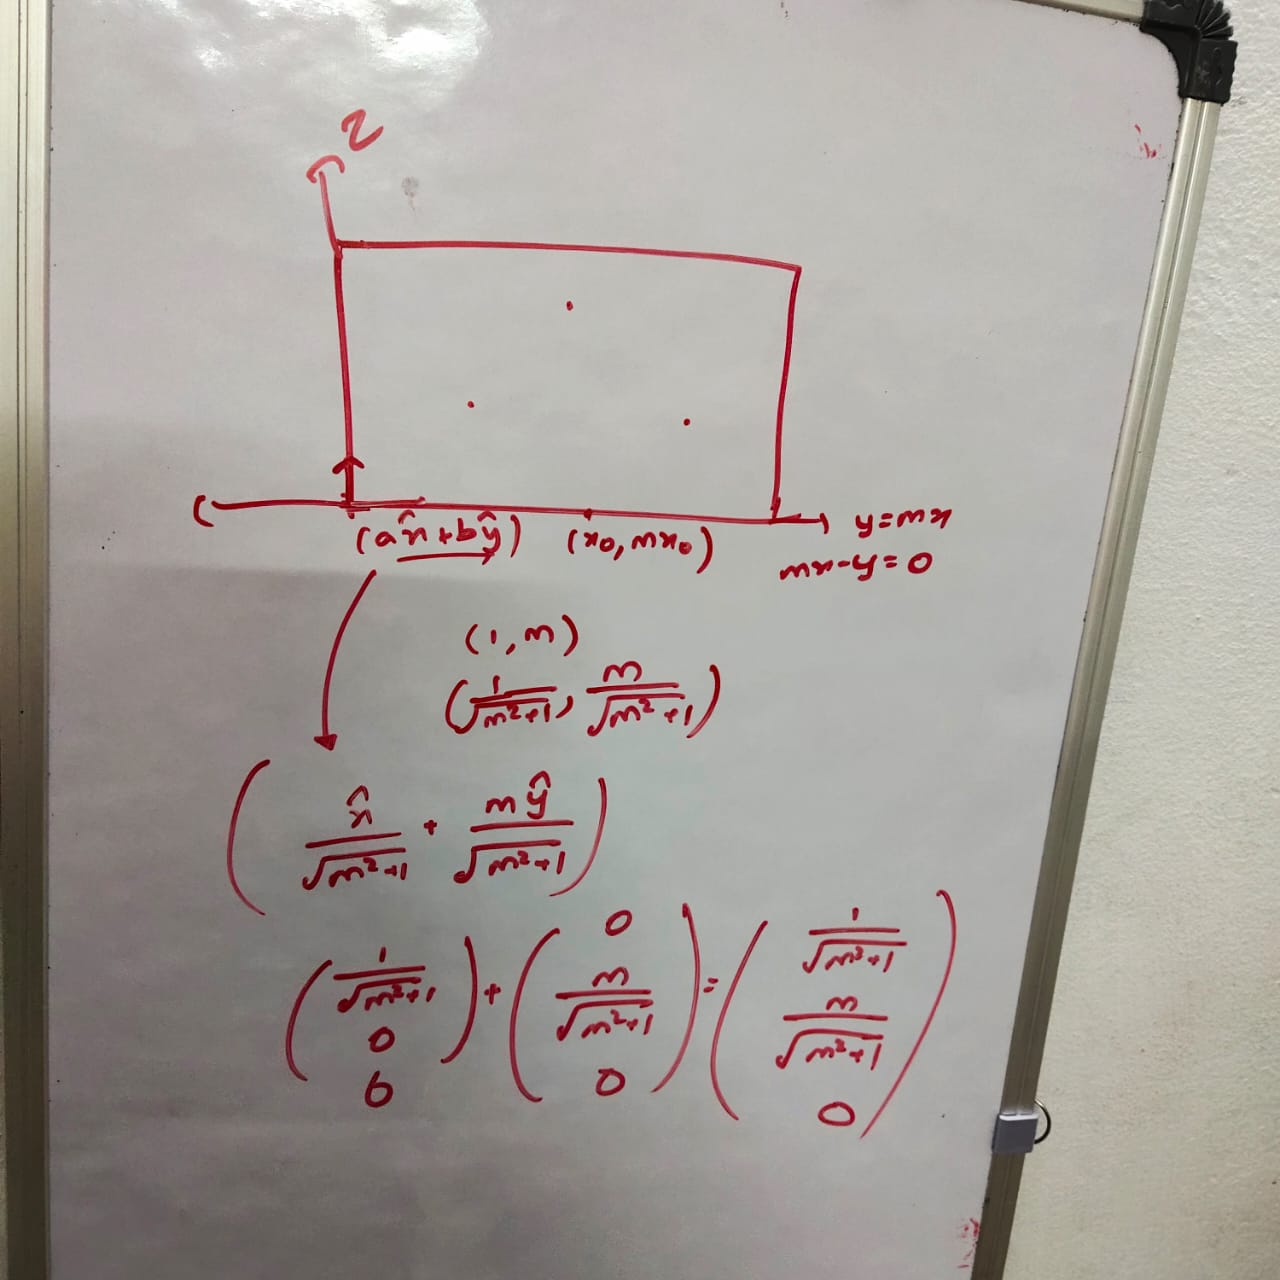 z
(ax̂+bŷ) (x₀, mx₀) y=mx
mx-y=0
(1, m)
(1/√m²+1, m/√m²+1)
(x̂/√m²+1 + mŷ/√m²+1)
(1/√m²+1 0 0) + (0 m/√m²+1 0) = (1/√m²+1 m/√m²+1 0)